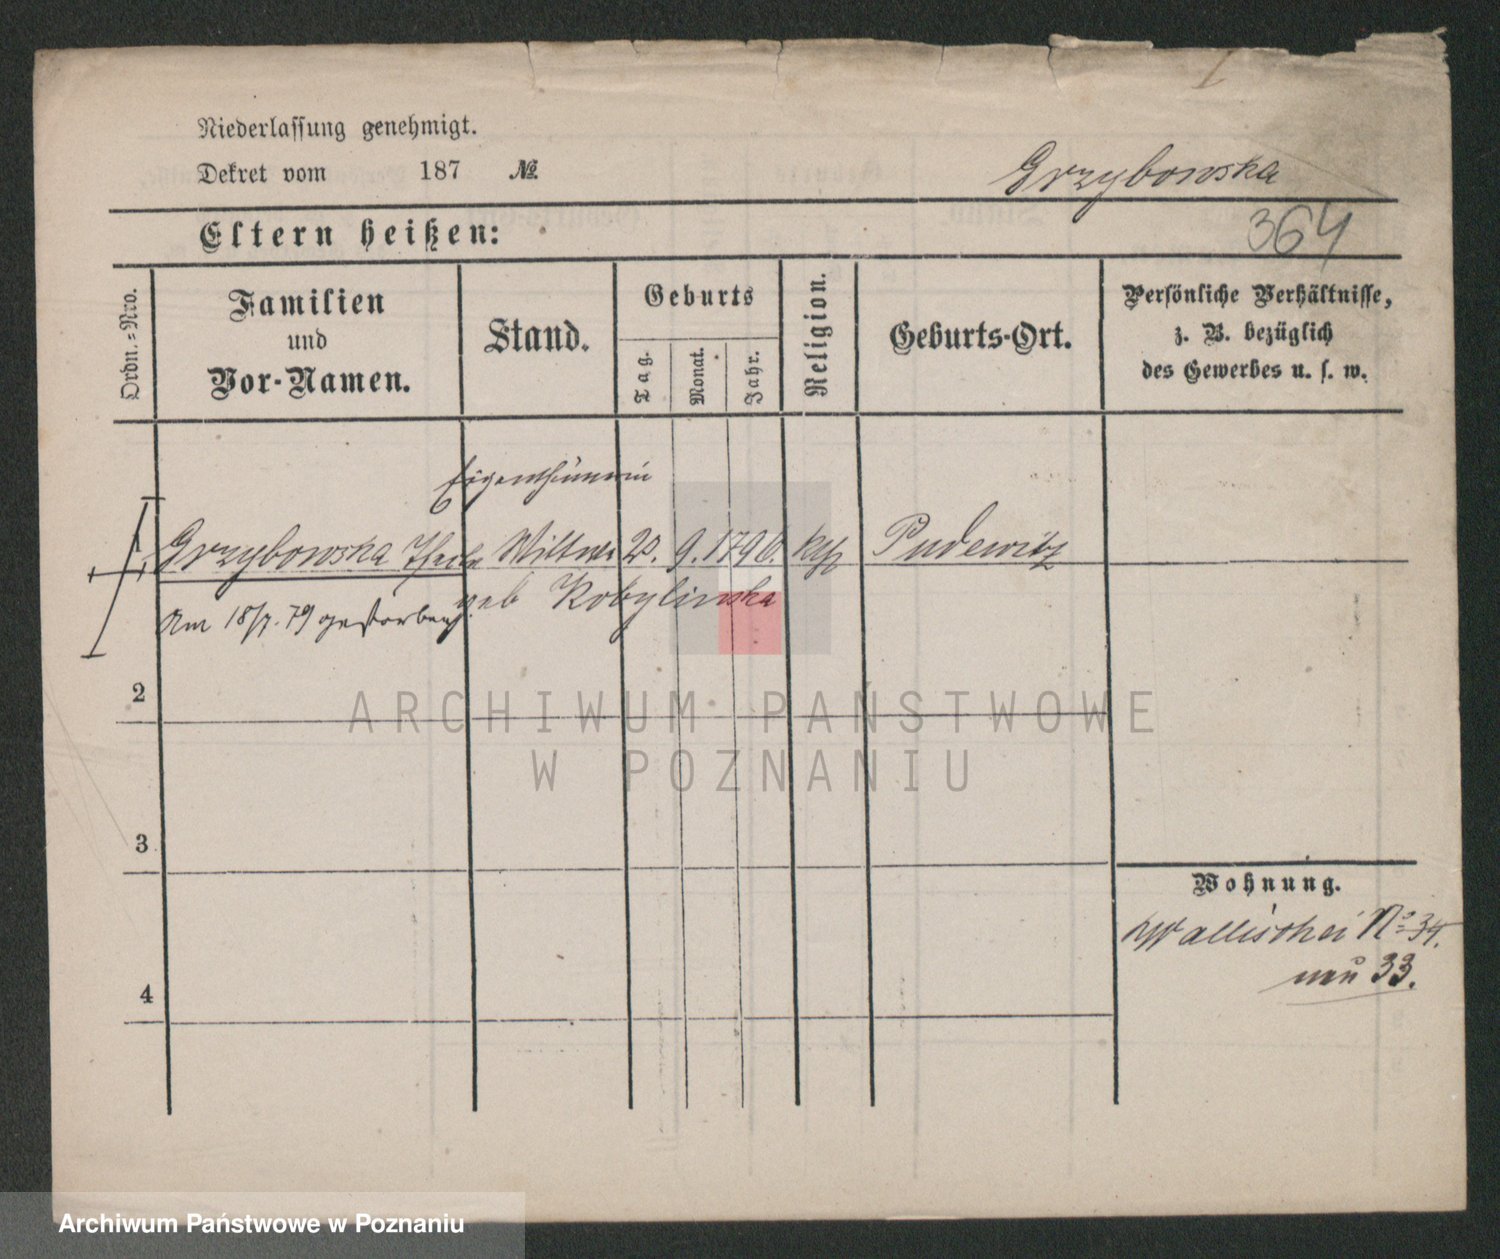 Niederlassung genehmigt.
Dekret vom 187 №
Grzybowska
364
Eltern heißen:
Ordn.-Nro.
Familien
und
Vor-Namen.
Stand.
Geburts
Tag.
Monat.
Jahr.
Religion.
Geburts-Ort.
Persönliche Verhältnisse,
z. B. bezüglich
des Gewerbes u. s. w.
Eigenthümerin
Grzybowska Thecla Wittwe 9. 1796. kth Pudewitz
geb Kobylinska
Am 18/7. 79 gestorben.
2
3
4
Wohnung.
Wallischei No 34.
neu 33.
ARCHIWUM PAŃSTWOWE
W POZNANIU
Archiwum Państwowe w Poznaniu